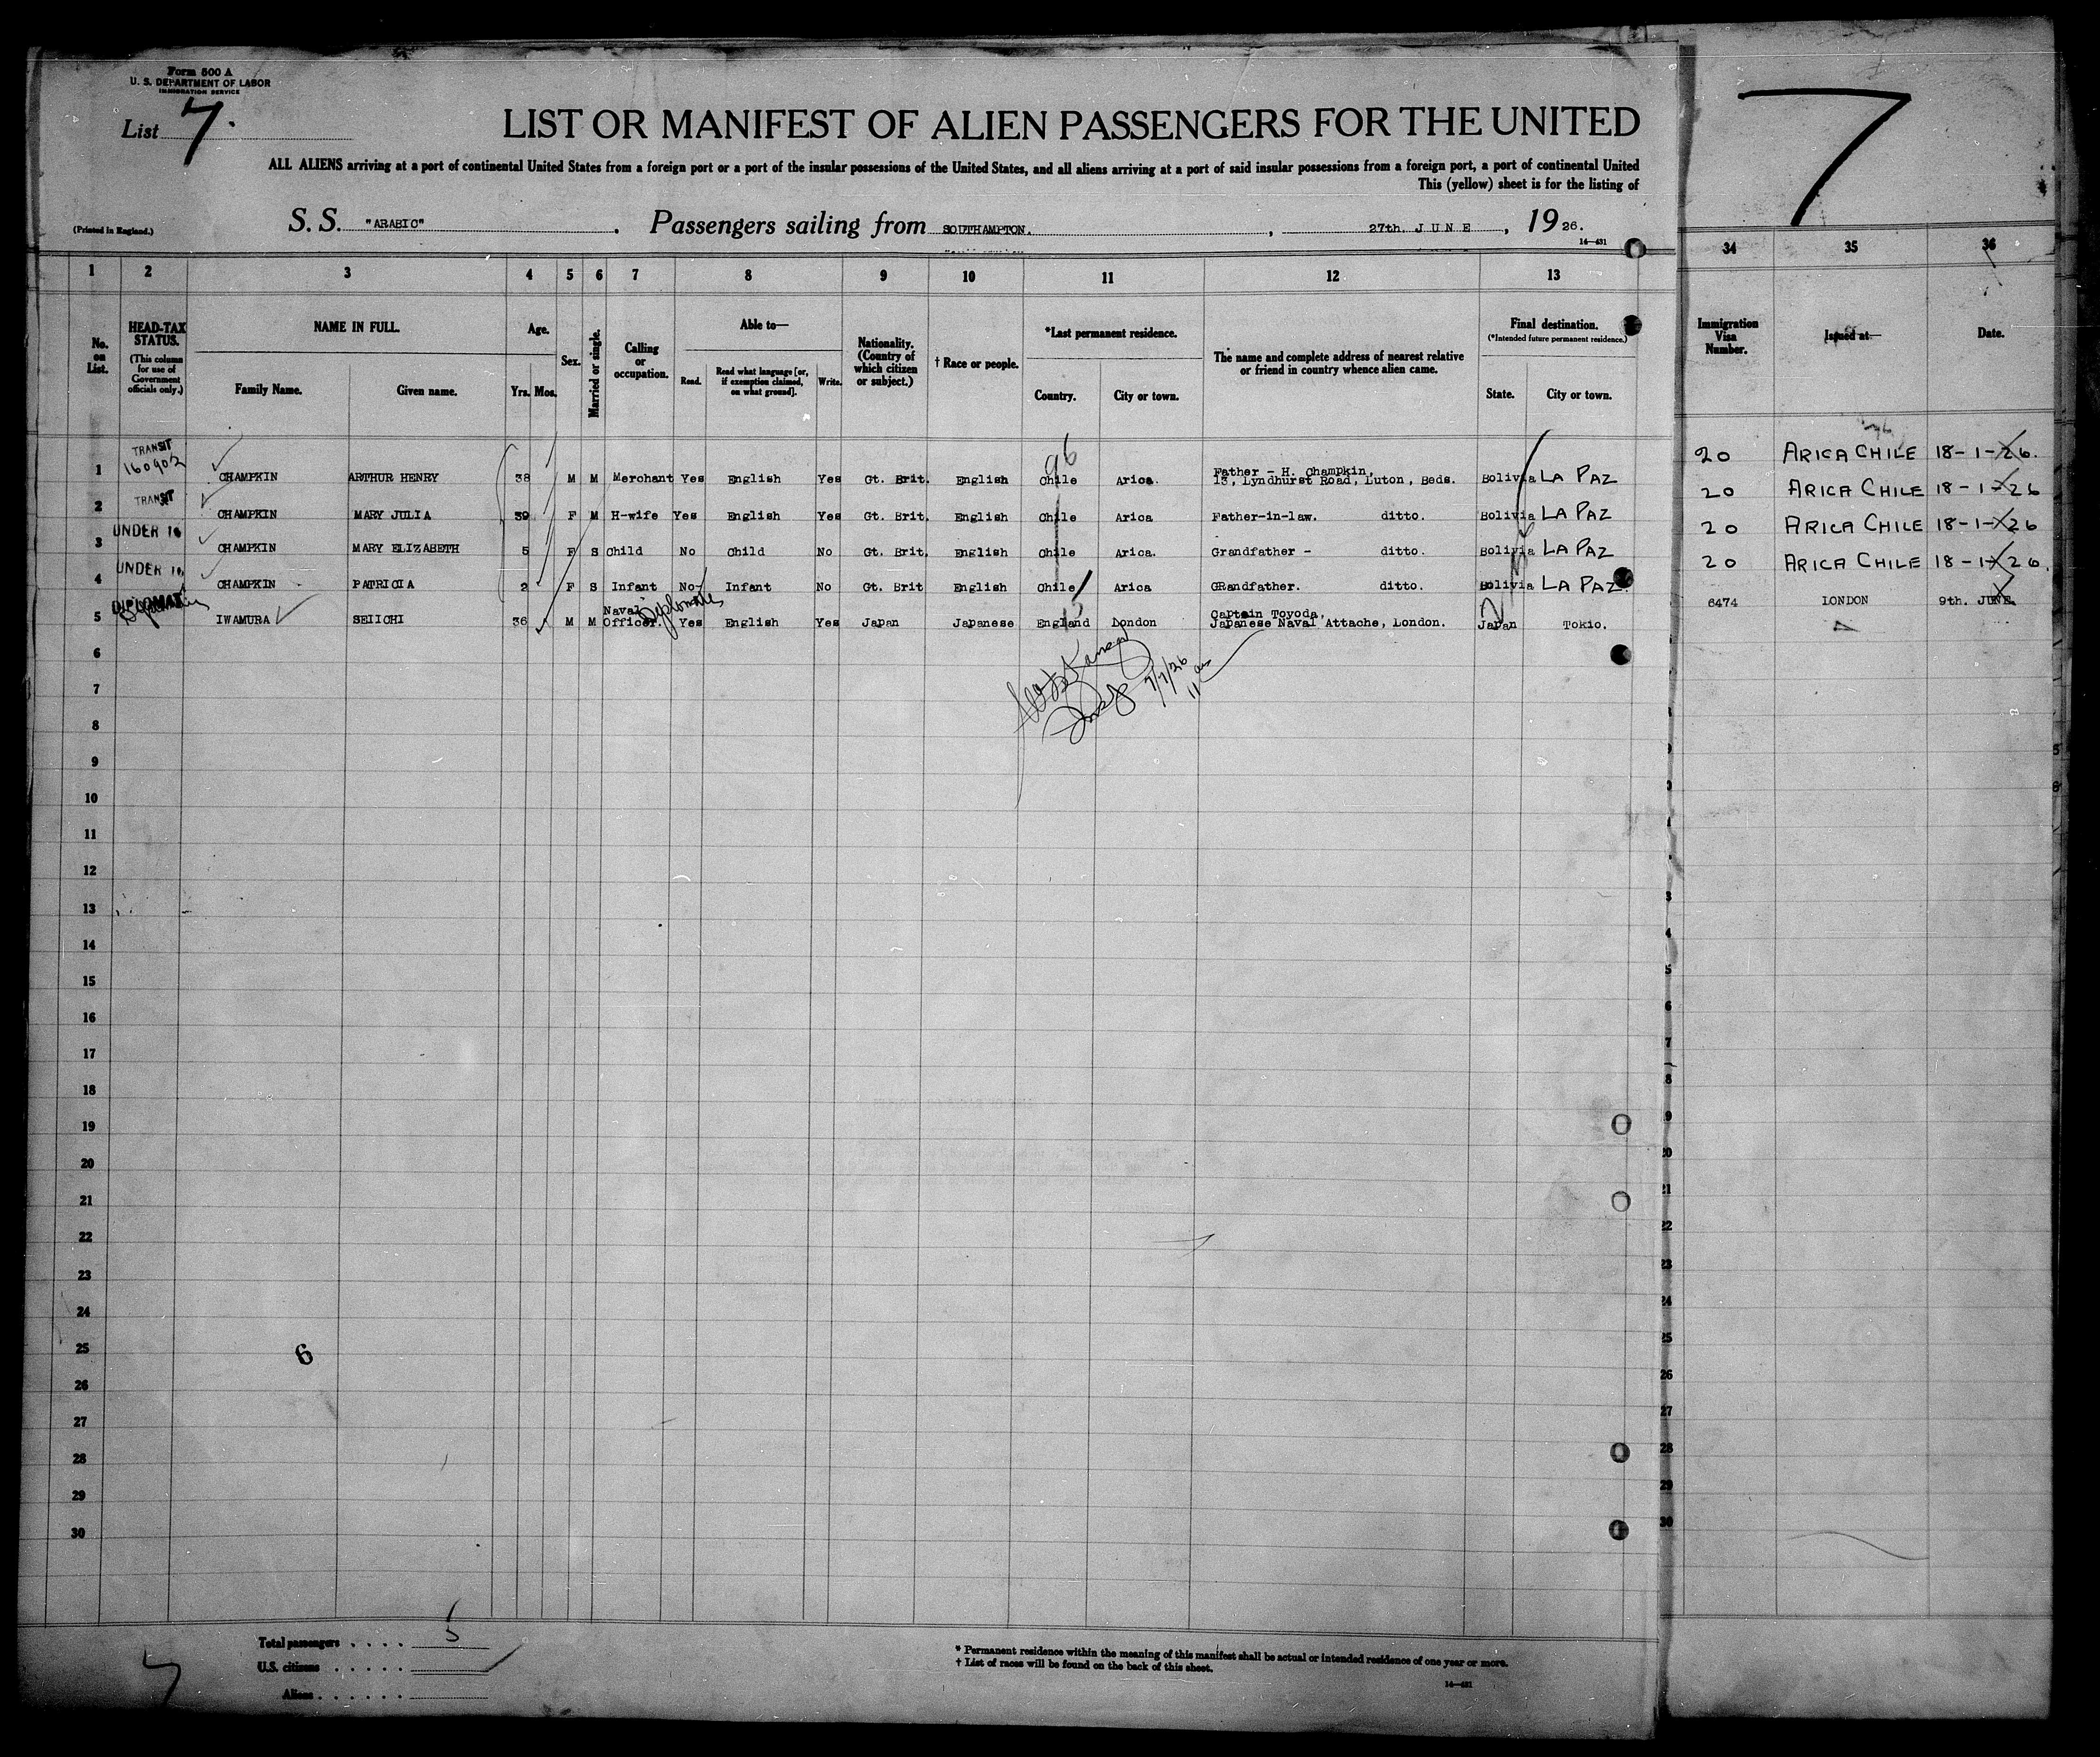 Form 500 A
U. S. DEPARTMENT OF LABOR
IMMIGRATION SERVICE
List 7.
LIST OR MANIFEST OF ALIEN PASSENGERS FOR THE UNITED
7
ALL ALIENS arriving at a port of continental United States from a foreign port or a port of the insular possessions of the United States, and all aliens arriving at a port of said insular possessions from a foreign port, a port of continental United
This (yellow) sheet is for the listing of
(Printed in England.)
S. S. "ARABIC" . Passengers sailing from SOUTHAMPTON. , 27th. JUNE , 1926.
14—431
1 2 3 4 5 6 7 8 9 10 11 12 13 34 35 36
No. on List.
HEAD-TAX STATUS.
(This column for use of Government officials only.)
NAME IN FULL.
Family Name. Given name.
Age.
Yrs. Mos.
Sex.
Married or single.
Calling or occupation.
Able to—
Read. Read what language [or, if exemption claimed, on what ground]. Write.
Nationality. (Country of which citizen or subject.)
† Race or people.
*Last permanent residence.
Country. City or town.
The name and complete address of nearest relative or friend in country whence alien came.
Final destination.
(*Intended future permanent residence.)
State. City or town.
Immigration Visa Number.
Issued at—
Date.
96
TRANSIT
160902
1 CHAMPKIN ARTHUR HENRY 38 M M Merchant Yes English Yes Gt. Brit. English Chile Arica. Father - H. Champkin, 13, Lyndhurst Road, Luton, Beds. Bolivia LA PAZ 20 ARICA CHILE 18-1-26.
TRANSIT
2 CHAMPKIN MARY JULIA 39 F M H-wife Yes English Yes Gt. Brit. English Chile Arica Father-in-law. ditto. Bolivia LA PAZ 20 ARICA CHILE 18-1-26
UNDER 16
3 CHAMPKIN MARY ELIZABETH 5 F S Child No Child No Gt. Brit. English Chile Arica. Grandfather - ditto. Bolivia LA PAZ 20 ARICA CHILE 18-1-26
UNDER 16
4 CHAMPKIN PATRICIA 2 F S Infant No Infant No Gt. Brit English Chile Arica GRandfather. ditto. Bolivia LA PAZ. 20 ARICA CHILE 18-1-26.
DIPLOMAT
5 IWAMURA SEIICHI 36 M M Naval Officer. Diplomatic Yes English Yes Japan Japanese England London Captain Toyoda, Japanese Naval Attache, London. Japan Tokio. 6474 LONDON 9th. JUNE.
6
7
7/7/26
11 am
8
9
10
11
12
13
14
15
16
17
18
19
20
21
22
23
24
25
6
26
27
28
29
30
Total passengers . . . . 5
U.S. citizens . . . . .
Aliens . . . . . .
* Permanent residence within the meaning of this manifest shall be actual or intended residence of one year or more.
† List of races will be found on the back of this sheet.
14—431